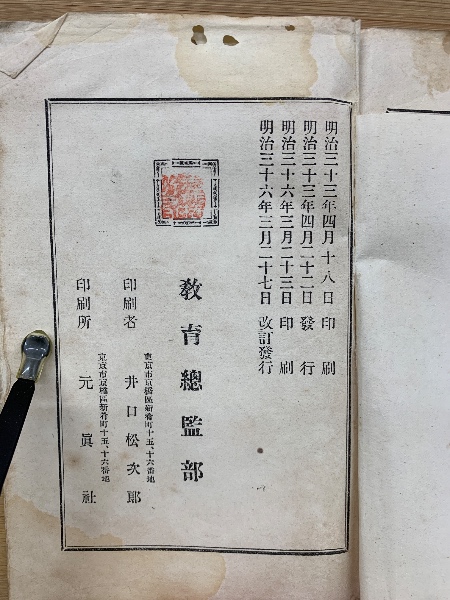 明治三十三年四月十八日印刷
明治三十三年四月二十二日發行
明治三十六年三月二十三日印刷
明治三十六年三月二十七日改訂發行
教育總監部
東京市京橋區新肴町十五、十六番地
印刷者 井口松次郎
東京市京橋區新肴町十五、十六番地
印刷所 元眞社